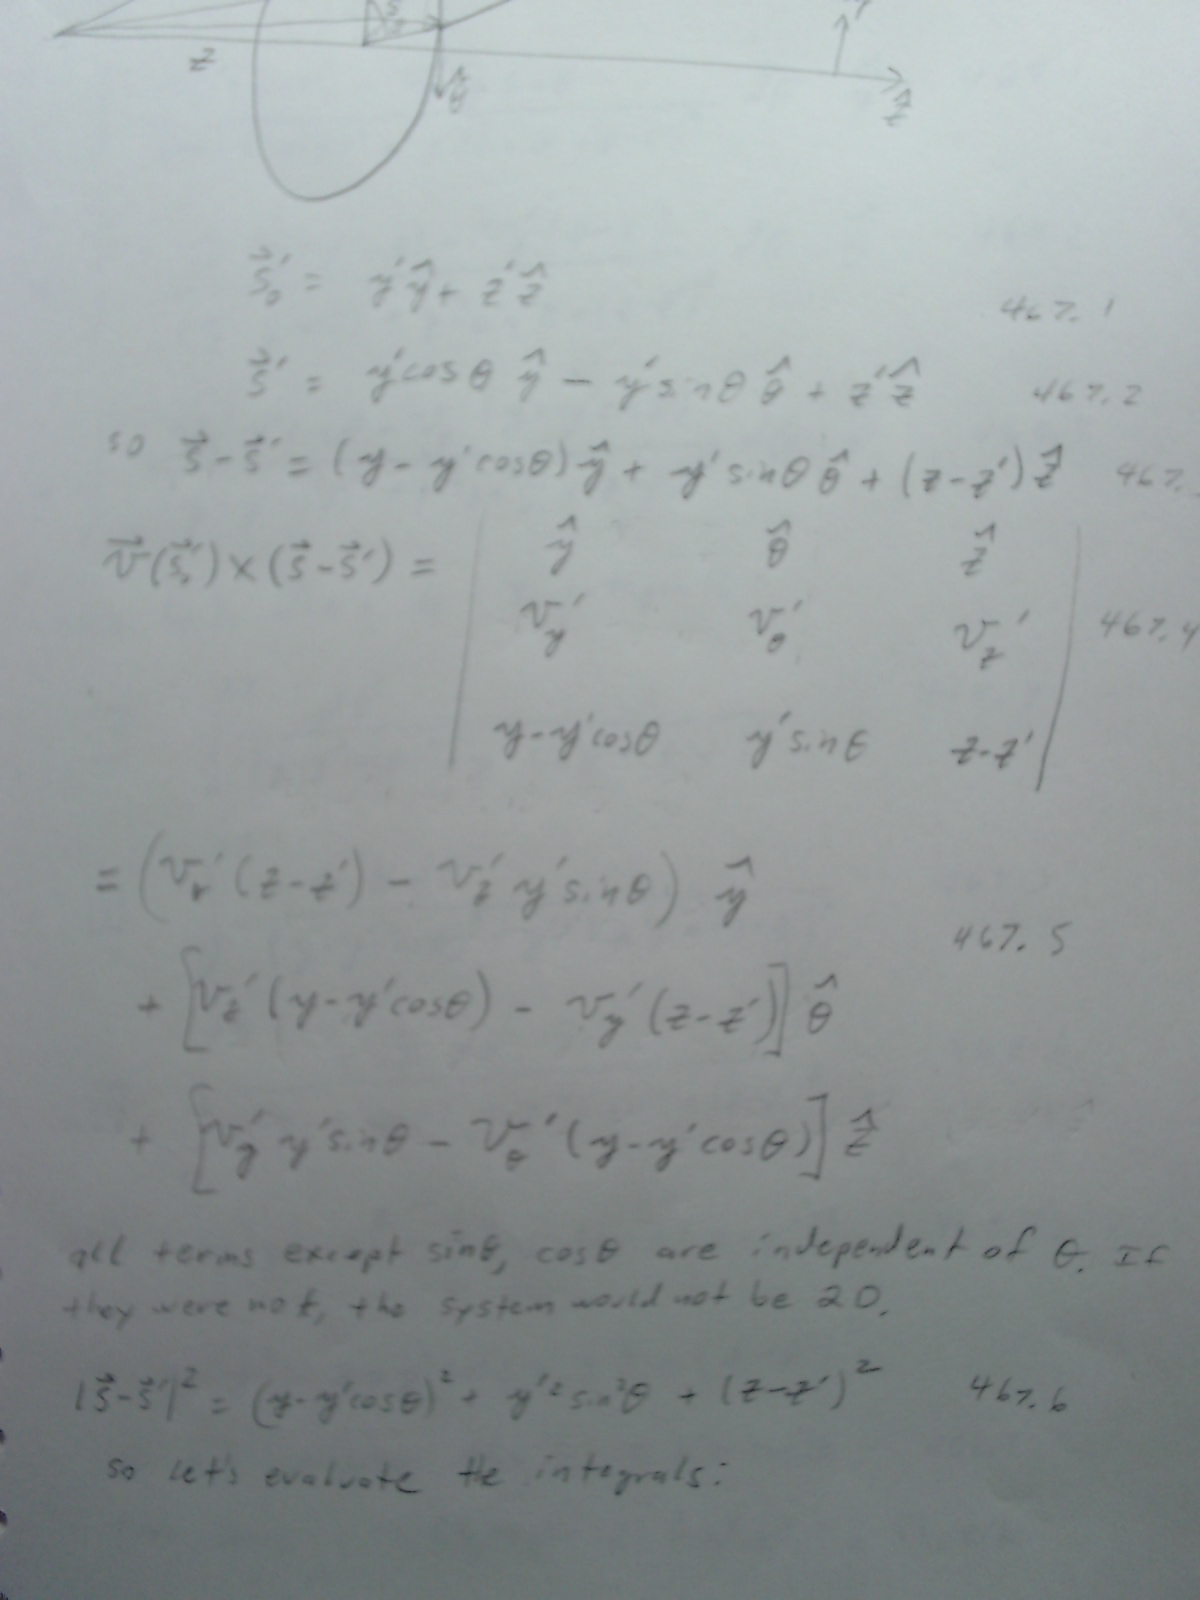 z
θ̂
ẑ
s⃗₀′ = y′ŷ + z′ẑ 467.1
s⃗′ = y′cosθ ŷ − y′sinθ θ̂ + z′ẑ 467.2
so s⃗−s⃗′ = (y − y′cosθ)ŷ + y′sinθ θ̂ + (z−z′)ẑ 467.
v⃗(s⃗₀′)×(s⃗−s⃗′) = | ŷ θ̂ ẑ |
v_y′ v_θ′ v_z′ 467.4
y−y′cosθ y′sinθ z−z′
= (v_θ′(z−z′) − v_z′ y′sinθ) ŷ
467.5
+ [v_z′(y−y′cosθ) − v_y′(z−z′)] θ̂
+ [v_y′ y′sinθ − v_θ′(y−y′cosθ)] ẑ
all terms except sinθ, cosθ are independent of θ. If
they were not, the system would not be 2D.
|s⃗−s⃗′|² = (y−y′cosθ)² + y′²sin²θ + (z−z′)² 467.6
so let's evaluate the integrals: